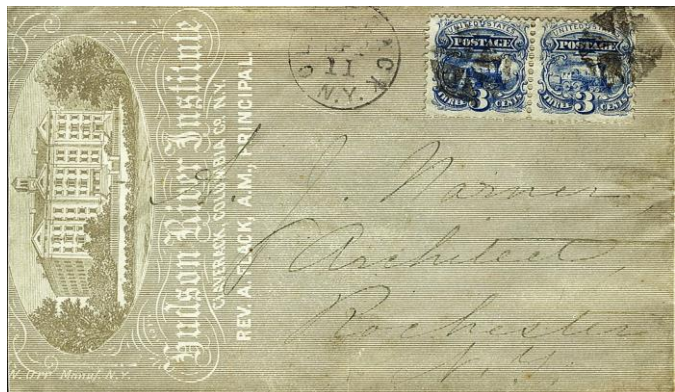 Hudson River Institute
CLAVERACK, COLUMBIA CO. N.Y.
REV. A. FLACK, A.M., PRINCIPAL.
N. Orr Manuf. N.Y.
11
N.Y.
UNITED STATES
POSTAGE
THREE 3 CENTS
UNITED STATES
POSTAGE
THREE 3 CENTS
A. J. Warner,
Architect,
Rochester
N.Y.